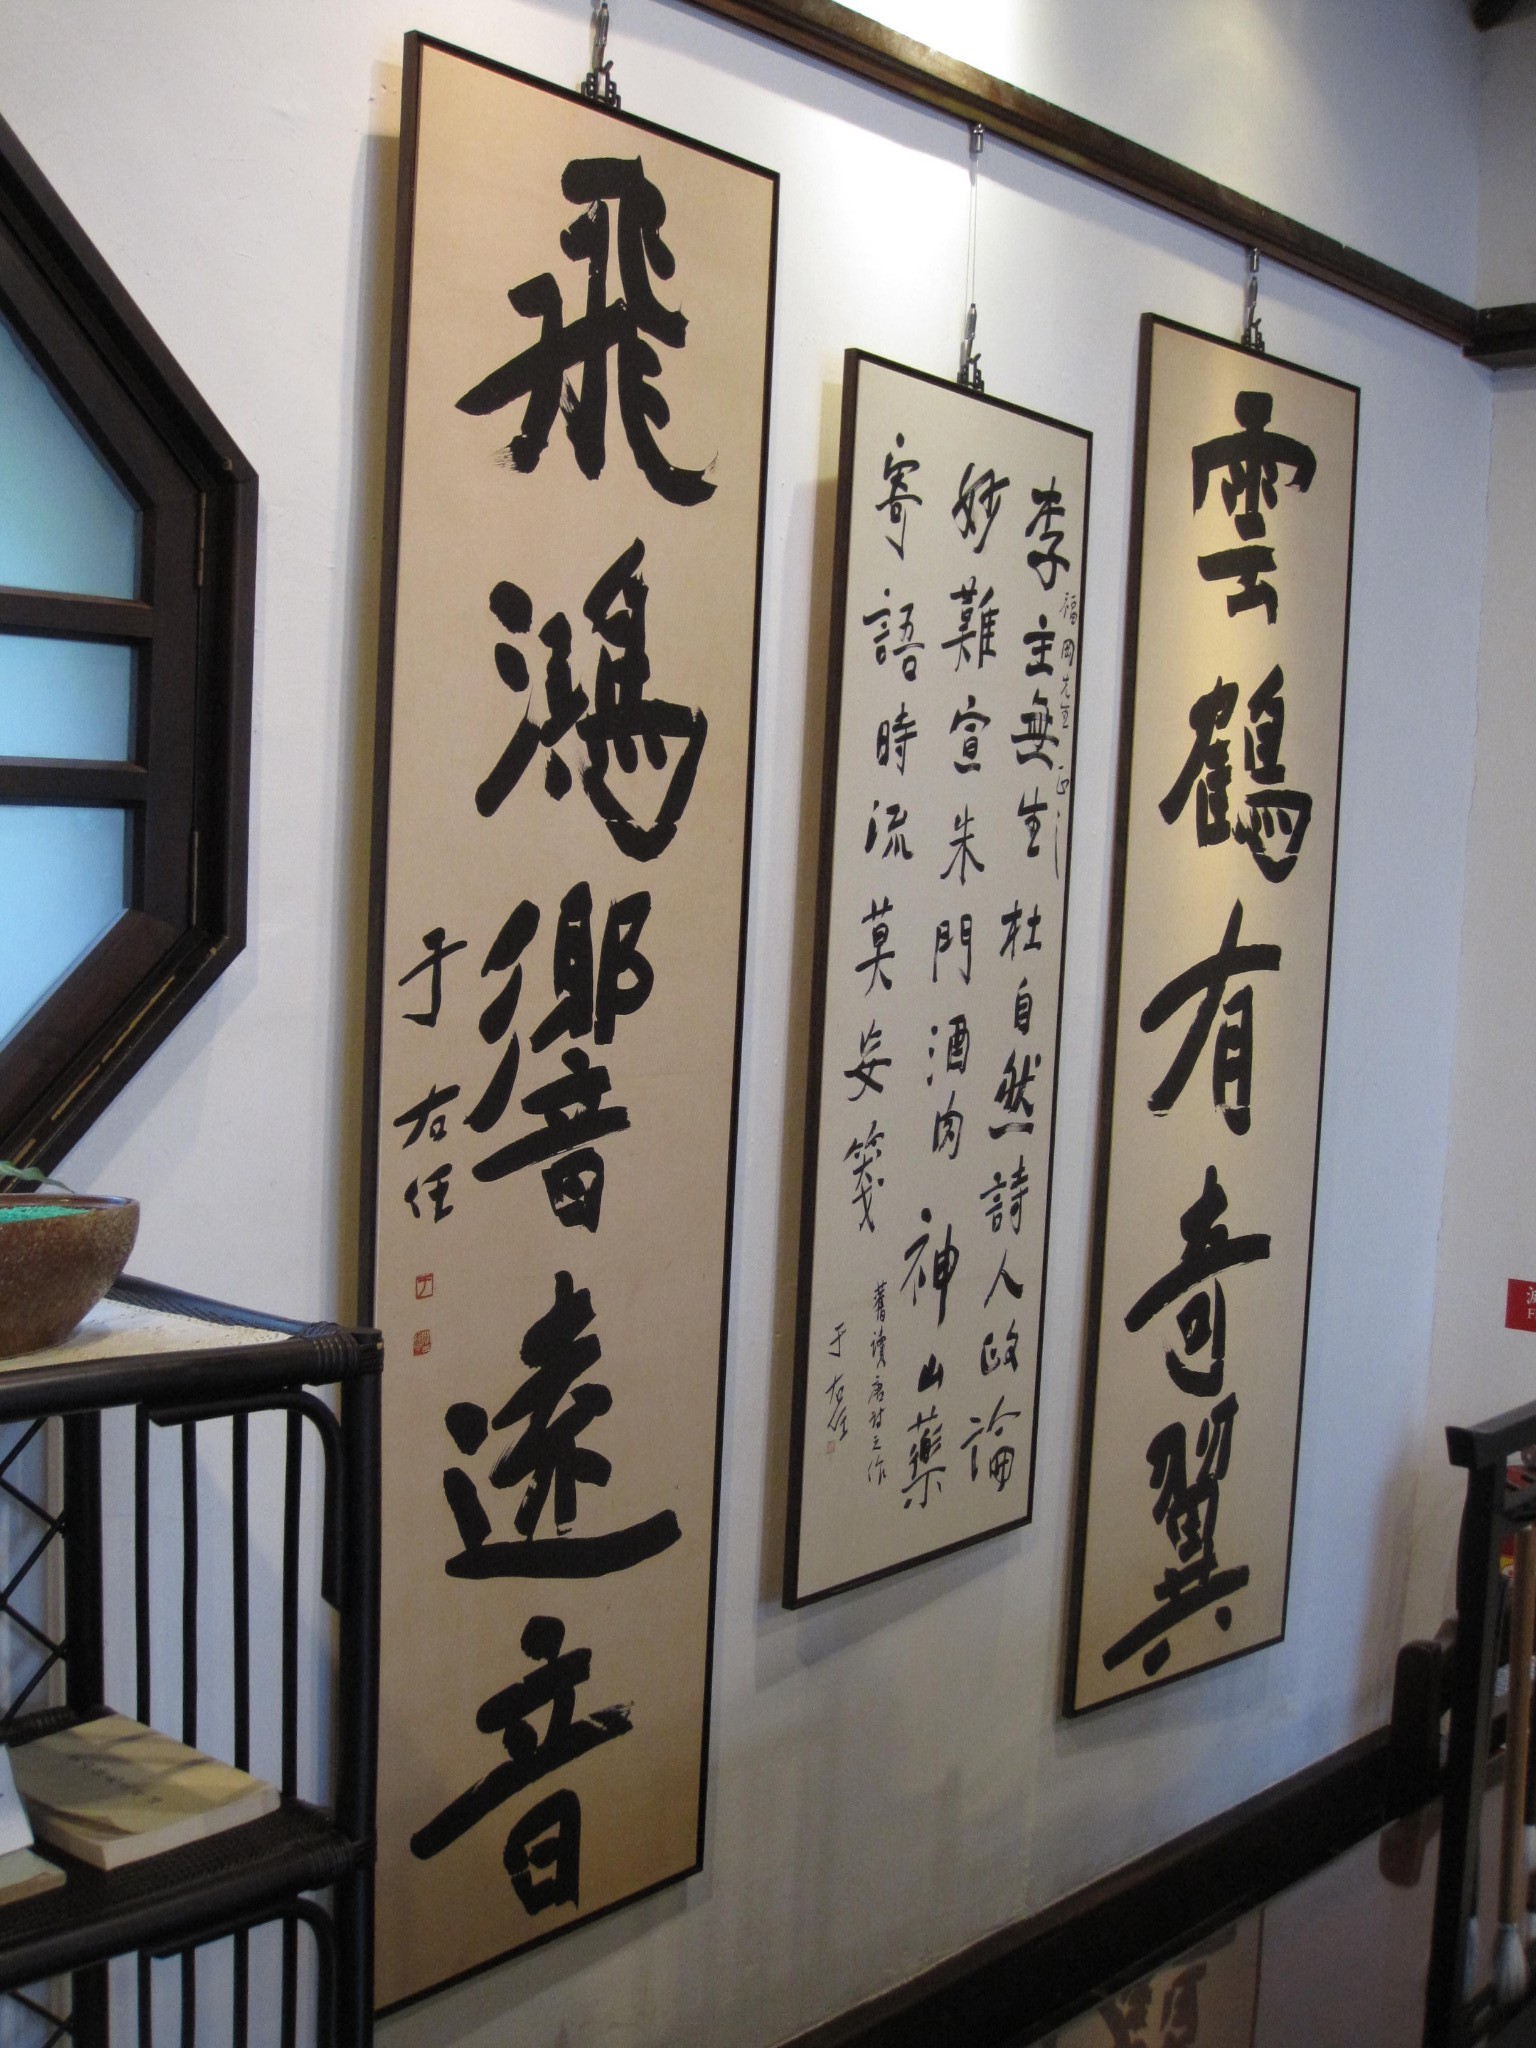 雲鶴有奇翼
福岡先生正之
李主無生杜自然詩人政論
妙難宣朱門酒肉神山藥
寄語時流莫妄箋
舊讀唐詩之作
于右任
飛鴻響遠音
于右任